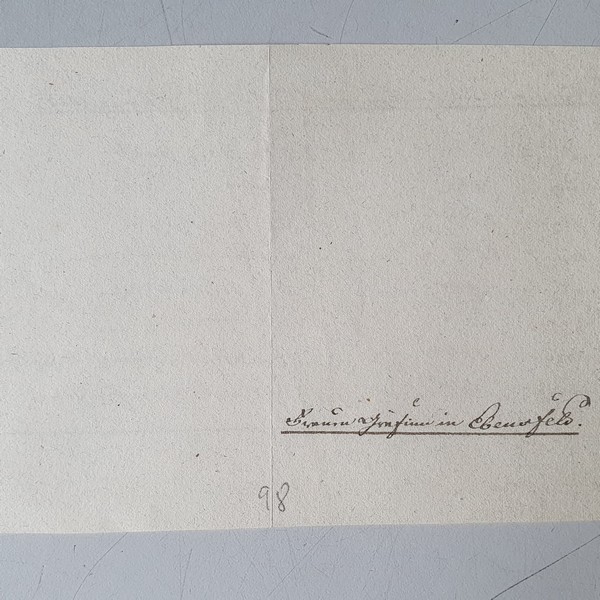 Frauen Gräfinn in Ebensfeld.
98